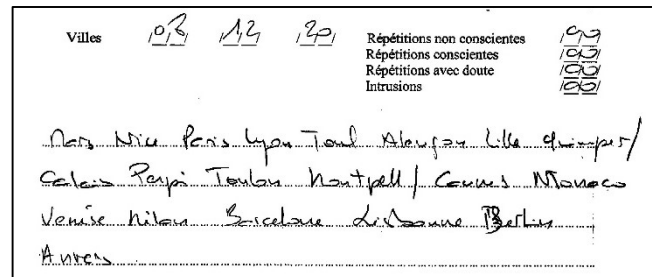 Villes 08 12 20 Répétitions non conscientes 00
Répétitions conscientes 00
Répétitions avec doute 00
Intrusions 00
Mars Nice Paris Lyon Toul Alençon Lille Quimper/
Calais Perpi Toulon Montpell/ Cannes Monaco
Venise Milan Barcelone Lisbonne Berlin
Anvers